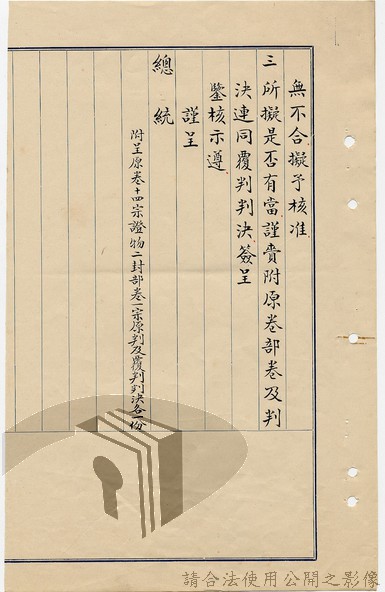 無不合擬予核准
三所擬是否有當謹賚附原卷部卷及判
決連同覆判判決簽呈
鑒核示遵
謹呈
總統
附呈原卷十四宗證物二封部卷一宗原判及覆判判決各一份
請合法使用公開之影像